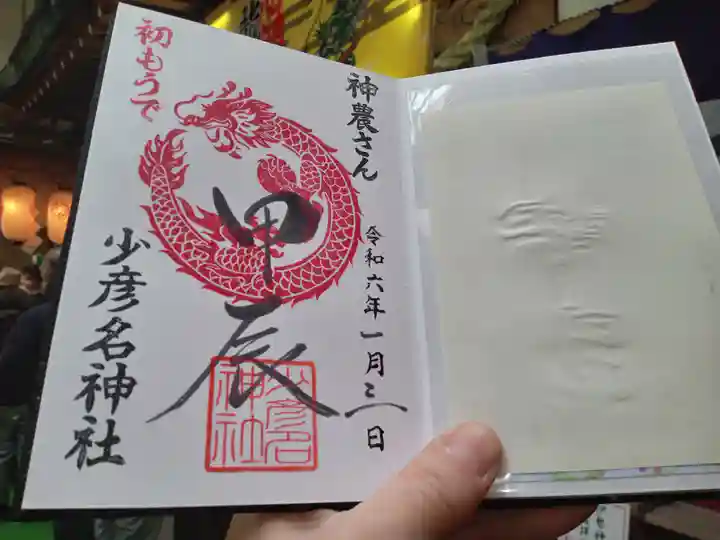 神農さん
令和六年一月三日
甲辰
初もうで
少彦名神社
少彦名
神社